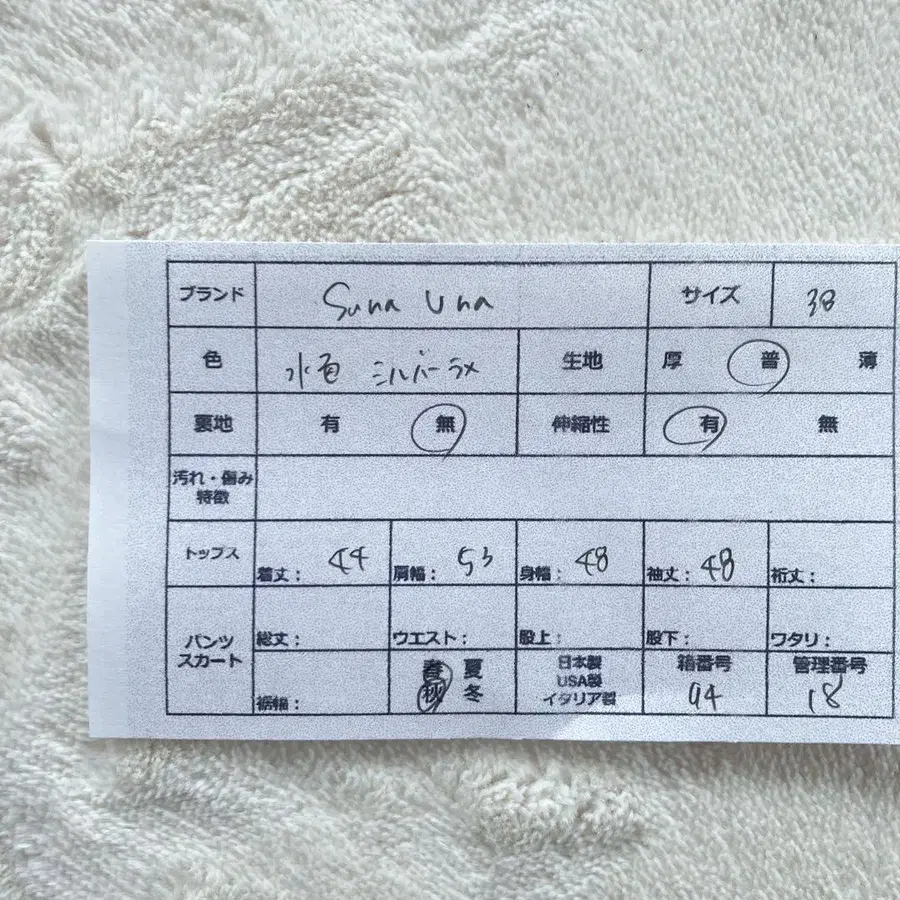 ブランド Suna Una サイズ 38
色 水色 シルバーラメ 生地 厚 普 薄
裏地 有 無 伸縮性 有 無
汚れ・傷み
特徴
トップス 着丈: 44 肩幅: 53 身幅: 48 袖丈: 48 裄丈:
パンツ
スカート
総丈: ウエスト: 股上: 股下: ワタリ:
裾幅:
春 夏
秋 冬
日本製
USA製
イタリア製
箱番号
94
管理番号
18